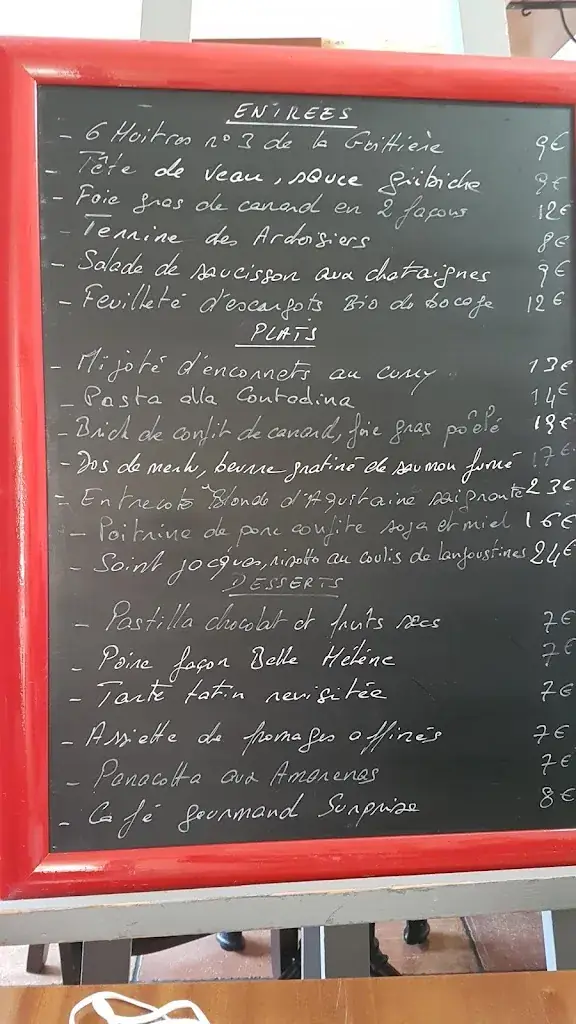 ENTREES
- 6 Huitres n°3 de la Guittière 9€
- Tête de veau, sauce gribiche 9€
- Foie gras de canard en 2 façons 12€
- Terrine des Ardoisiers 8€
- Salade de saucisson aux chataignes 9€
- Feuilleté d'escargots Bio du bocage 12€
PLATS
- Mijoté d'encornets au curry 13€
- Pasta alla Contadina 14€
- Brick de confit de canard, foie gras poêlé 19€
- Dos de merlu, beurre gratiné de saumon fumé 17€
- Entrecote Blonde d'Aquitaine saignante 23€
- Poitrine de porc confite soja et miel 16€
- Saint jacques, risotto au coulis de langoustines 24€
DESSERTS
- Pastilla chocolat et fruits secs 7€
- Poire façon Belle Hélène 7€
- Tarte tatin revisitée 7€
- Assiette de fromages affinés 7€
- Panacotta aux Amarenas 7€
- Café gourmand Surprise 8€